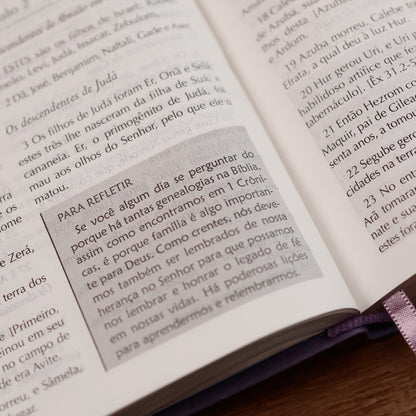 ESTES são os filhos de Israel: Rúben,
Levi, Judá, Issacar, Zebulom,
2 Dã, José, Benjamim, Naftali, Gade e Aser.
Os descendentes de Judá
3 Os filhos de Judá foram Er, Onã e Selá;
estes três lhe nasceram da filha de Suá, a
cananeia. Er, o primogênito de Judá, foi
mau aos olhos do Senhor, pelo que ele o
matou.
PARA REFLETIR
Se você algum dia se perguntar do
porquê há tantas genealogias na Bíblia,
assim como encontramos em 1 Crôni-
cas, é porque família é algo importan-
te para Deus. Como crentes, nós deve-
mos também ser lembrados de nossa
herança no Senhor para que possamos
nos lembrar e honrar o legado de fé
em nossas vidas. Há poderosas lições
para aprendermos e relembrarmos.
e Zerá,
terra dos
e [Primeiro,
einou em seu
no campo de
de era Avite.
e Sâmela,
18 Calebe
de Azuba, sua
lhos desta
e Ardom.
19 Azuba morreu, Calebe
Efrata, a qual deu à luz Hur
20 Hur gerou Uri, e Uri
habilidoso artífice que
tabernáculo]. [Êx 31.2-5
21 Então Hezrom
Maquir, pai de Gilea
senta anos, a tomou
22 Segube
cidades na terra
23 No
Ará tomar
nate e suas
estes foram